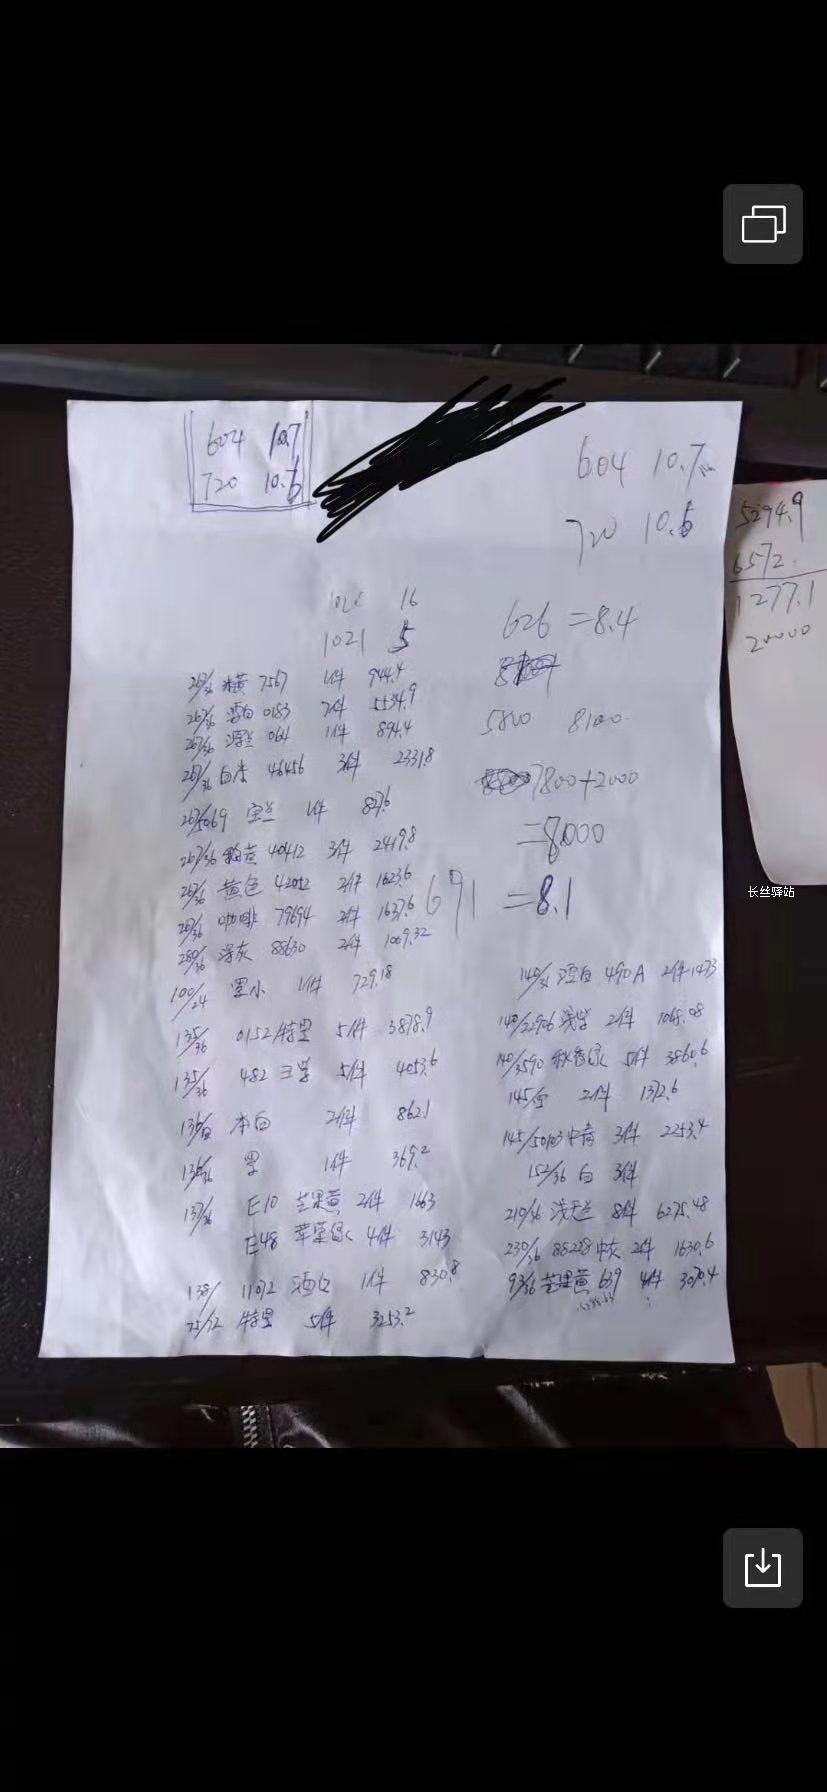 604 10.7
720 10.6
604 10.7
720 10.6
16
1021 5
626 =8.4
5800 8100
7800+2000
=8000
691 =8.1
267/36 黄 7567 1件 944.4
267/36 漂白 0183 7件 5534.9
267/36 深兰 064 1件 894.4
267/36 白 46456 3件 2331.8
267/5069 宝兰 1件 827.6
267/36 黄 40412 3件 2419.8
267/36 黄色 42012 2件 1623.6
267/36 咖啡 79694 2件 1637.6
280/36 深灰 88630 2件 1069.32
100/24 黑小 1件 729.18
135/36 0152 特黑 5件 3878.9
135/36 482 5件 4053.6
136/白 本白 2件 862.1
136/36 黑 1件 369.2
137/36 E10 芒果黄 2件 1663
E48 苹果绿 4件 3143
138/ 11072 漂白 1件 830.8
75/72 特黑 5件 3253.2
140/36 漂白 490A 2件 1473
140/22906 浅 2件 1068.08
140/3590 秋香绿 5件 3860.6
145/ 2件 1372.6
145/50103 中 3件 2253.4
152/36 白 3件
210/36 浅天兰 8件 6275.48
230/36 88228 中灰 2件 1630.6
93/36 芒果黄 639 4件 3070.4
5294.9
6572.
1277.1
20000
长丝驿站